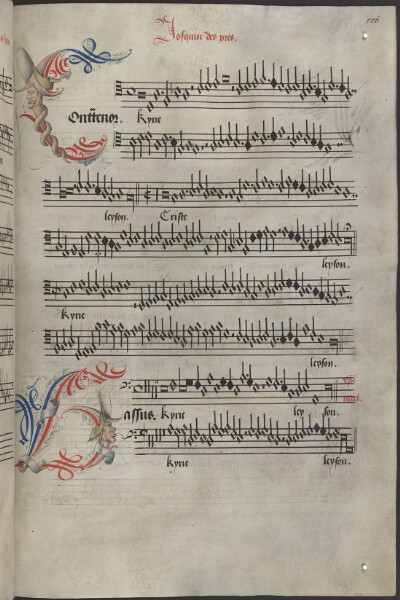 Josquin des pres.
106
Conttenor. Kyrie
leyson. Criste
leyson.
Kyrie
leyson.
Bassus. Kyrie ley son.
Kyrie leyson.